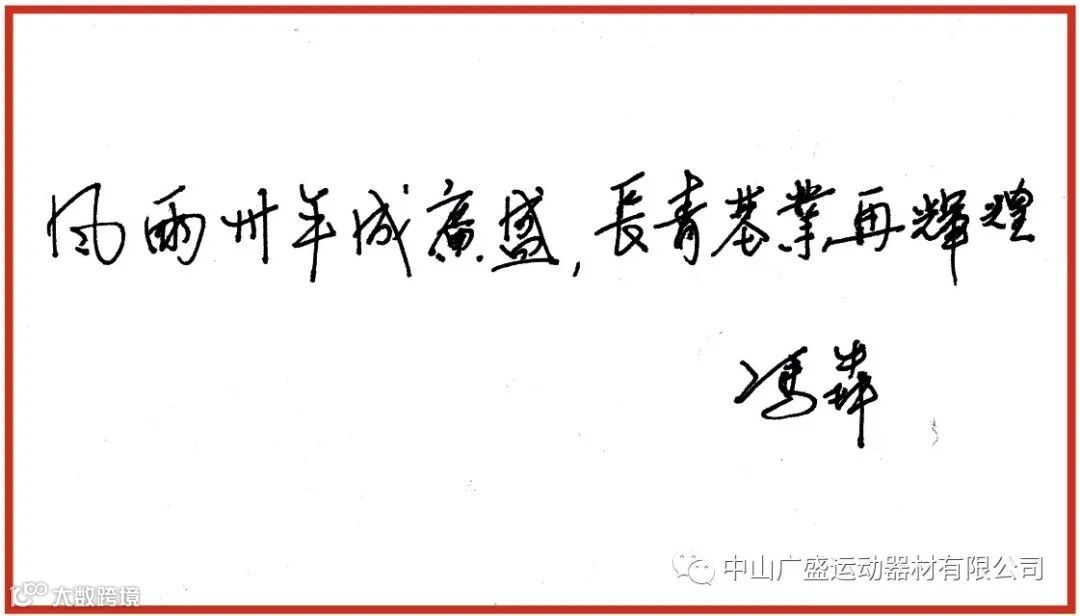 风雨卅年成廣盛,長青基業再輝煌
冯犇
中山广盛运动器材有限公司
大数跨境